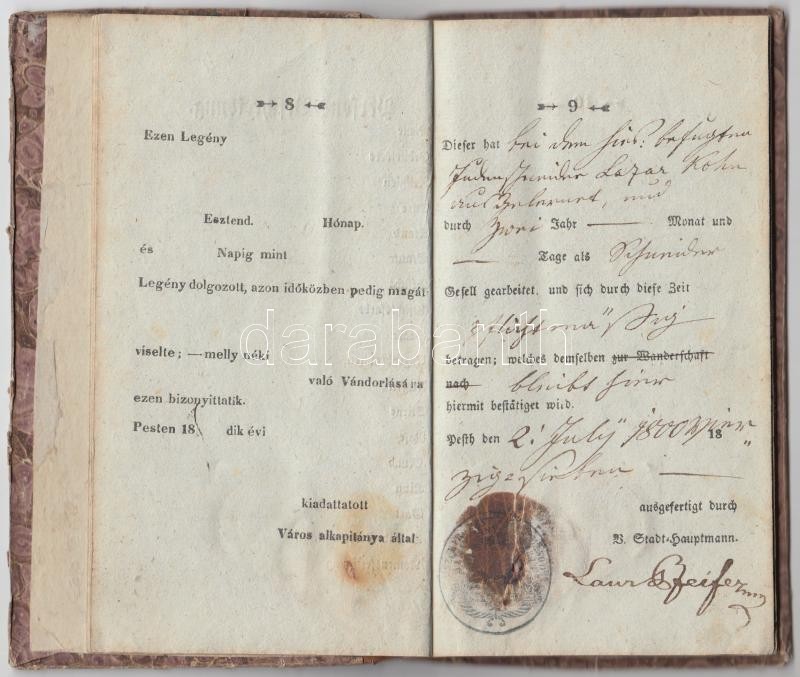 8
Ezen Legény
Esztend. Hónap.
és Napig mint
Legény dolgozott, azon időközben pedig magát
viselte; —melly néki
való Vándorlására
ezen bizonyittatik.
Pesten 18 dik évi
kiadattatott
Város alkapitánya által
9
Dieser hat bei dem hies: befugten
Judenschneider Lazar Kohn
ausgelernet, und
durch zwei Jahr — Monat und
— Tage als Schneider
Gesell gearbeitet, und sich durch diese Zeit
pflichtmäßig
betragen; welches demselben zur Wanderschaft
nach bleibt hier
hiermit bestätiget wird.
Pesth den 2: July 1800 vier 18
zig = sieben —
ausgefertigt durch
V. Stadt-Hauptmann.
Pfeifer
darabanth